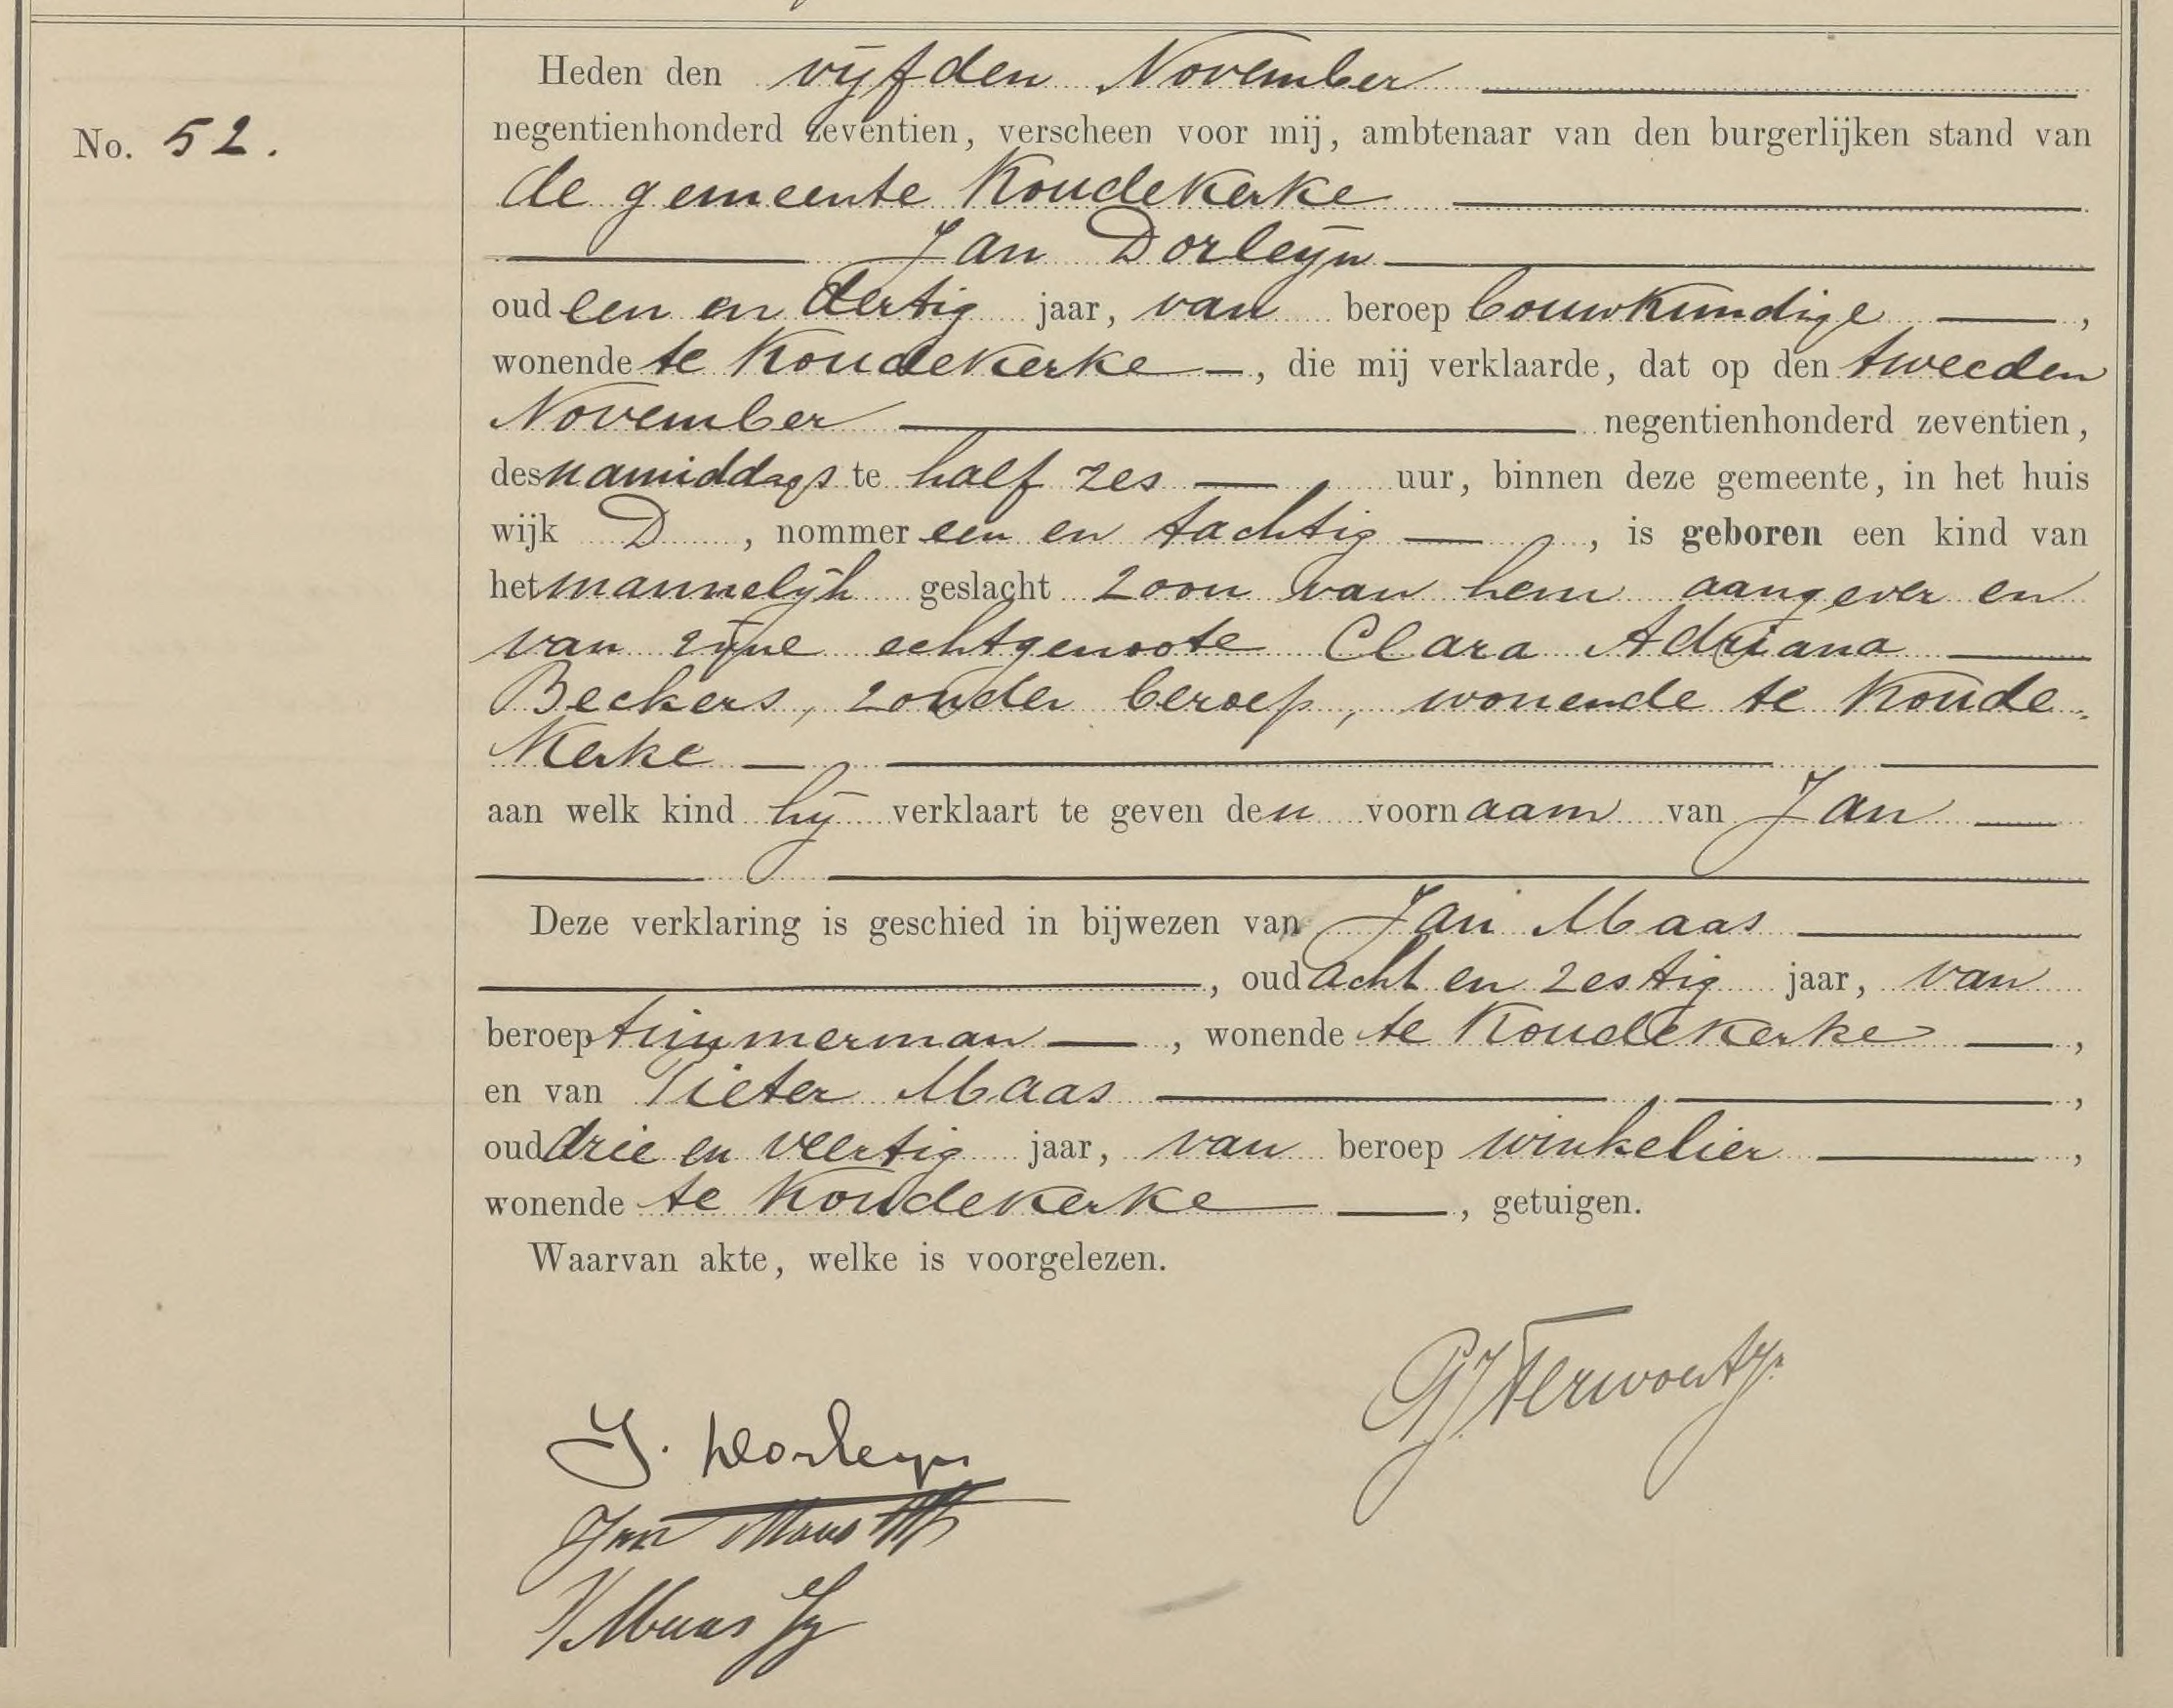 No. 52.
Heden den vijfden November
negentienhonderd zeventien, verscheen voor mij, ambtenaar van den burgerlijken stand van
de gemeente Koudekerke
Jan Dorleijn
oud een en dertig jaar, van beroep bouwkundige,
wonende te Koudekerke, die mij verklaarde, dat op den tweeden
November negentienhonderd zeventien,
des namiddags te half zes uur, binnen deze gemeente, in het huis
wijk D, nommer een en tachtig, is geboren een kind van
het mannelijk geslacht zoon van hem aangever en
van zijne echtgenoote Clara Adriana
Beckers, zonder beroep, wonende te Koude-
kerke
aan welk kind hij verklaart te geven den voornaam van Jan
Deze verklaring is geschied in bijwezen van Jan Maas
, oud acht en zestig jaar, van
beroep timmerman, wonende te Koudekerke,
en van Pieter Maas,
oud drie en veertig jaar, van beroep winkelier,
wonende te Koudekerke, getuigen.
Waarvan akte, welke is voorgelezen.
J. Dorleijn
Jan Maas
Maas